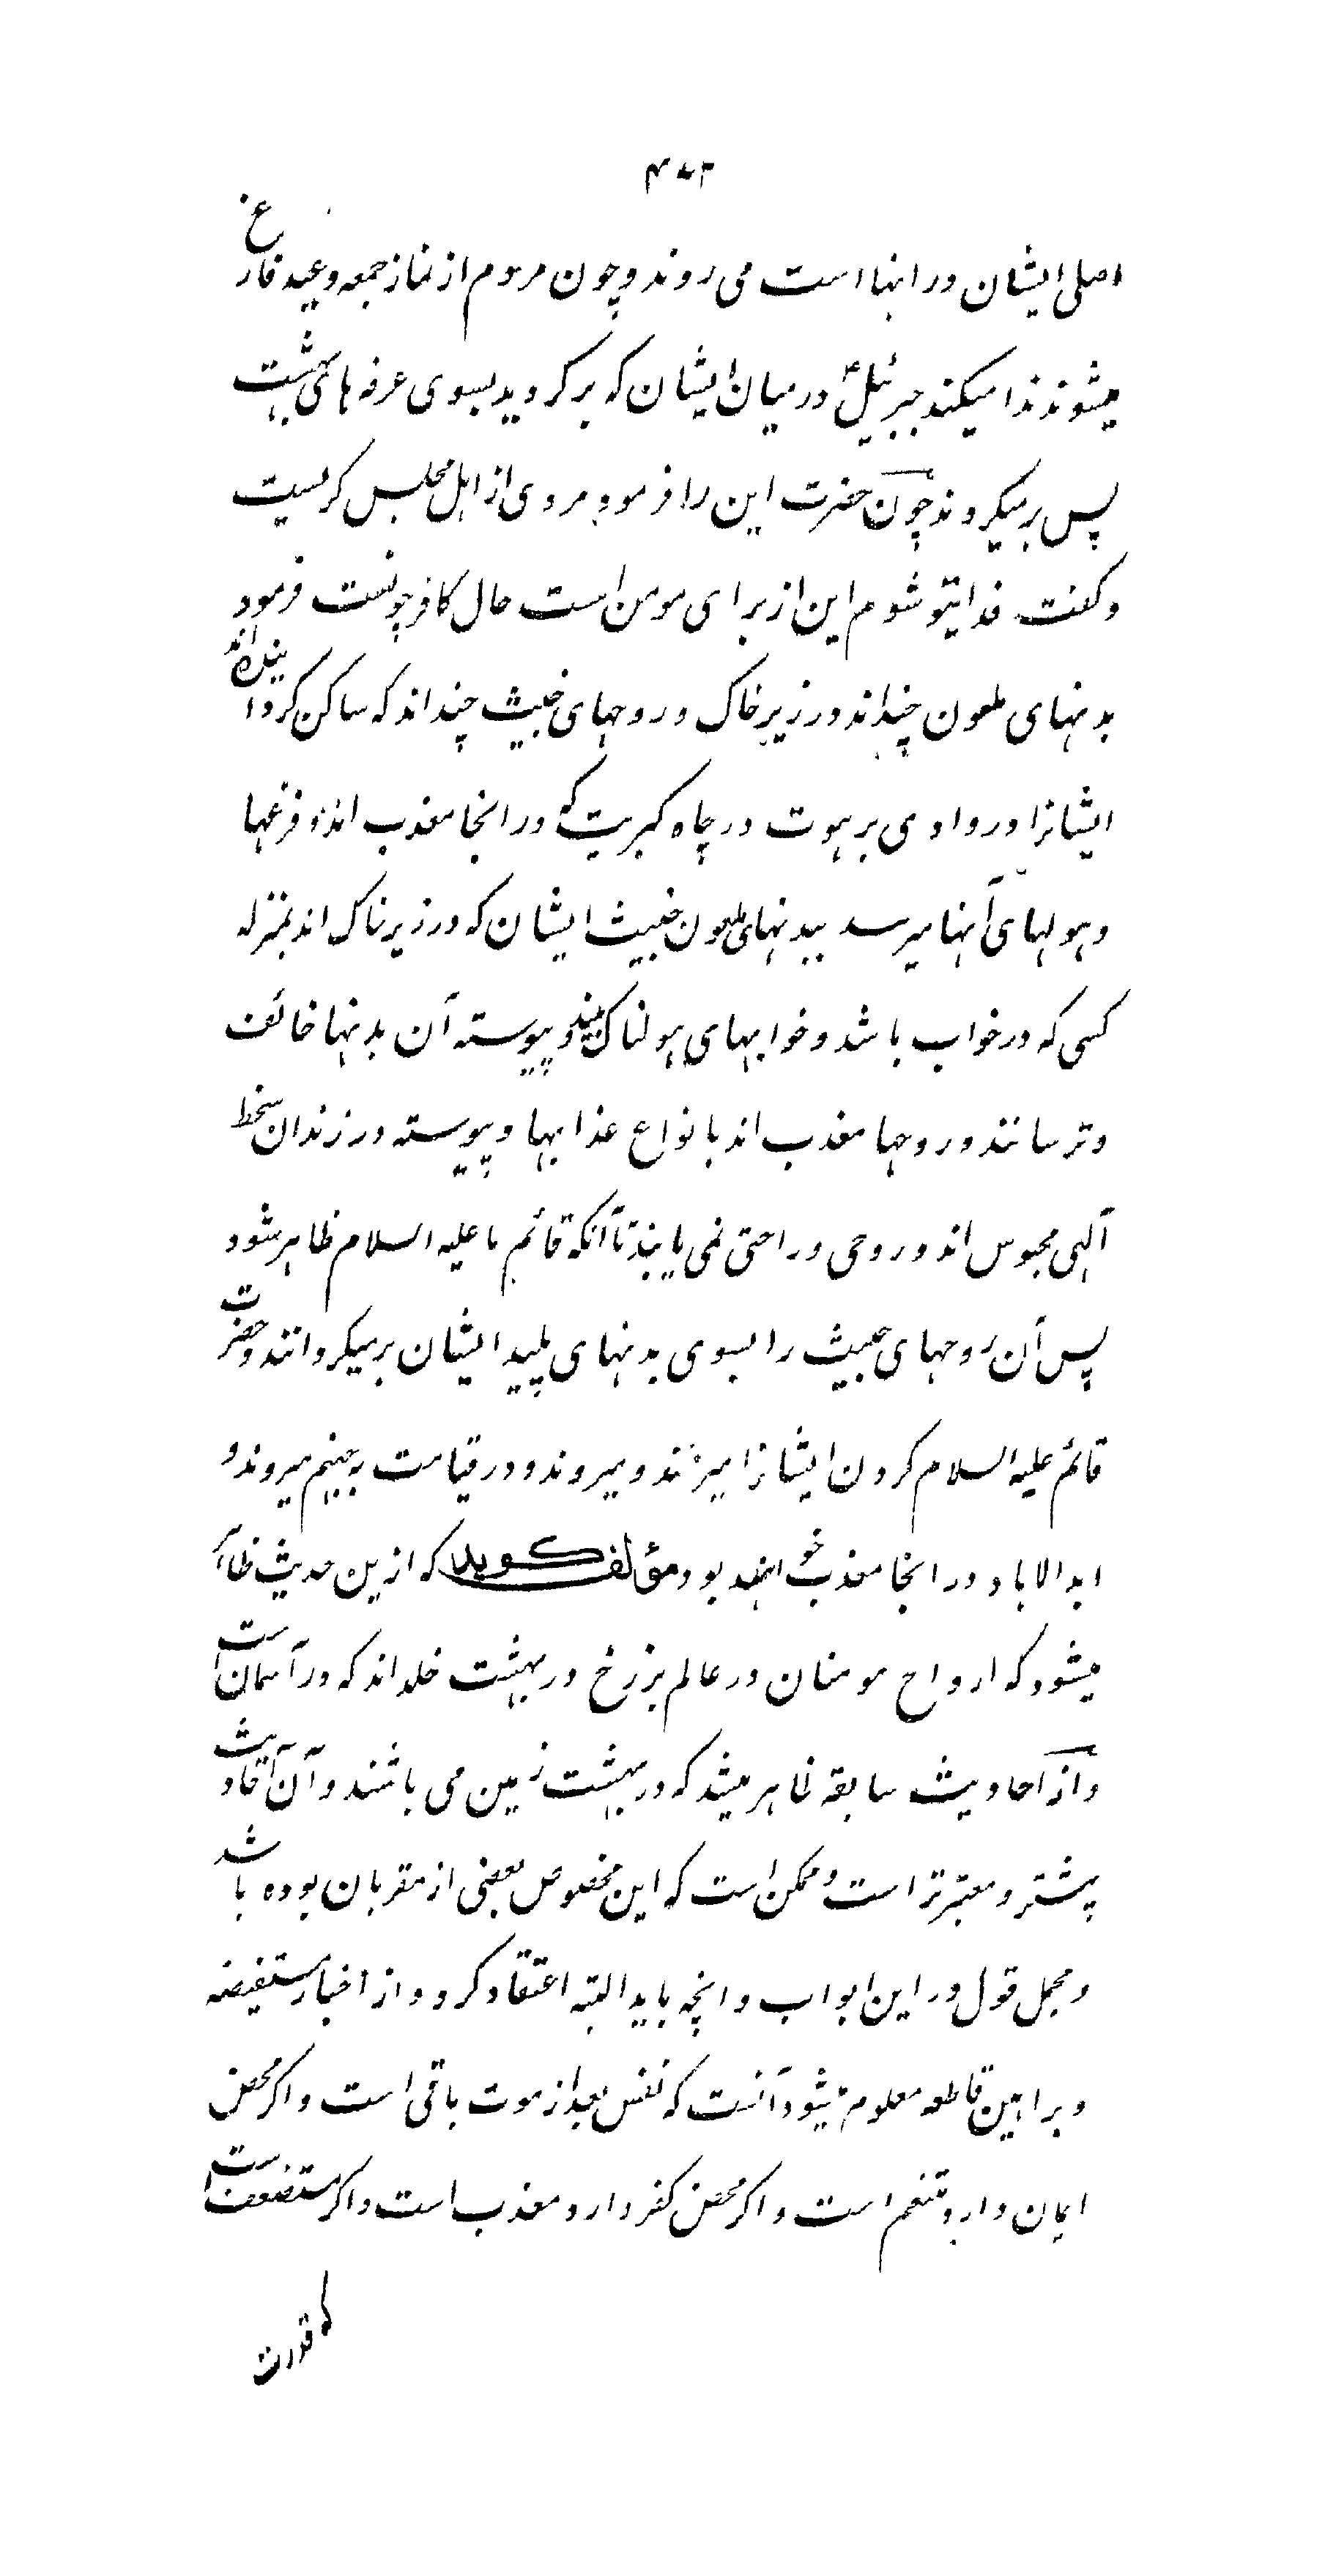 اصلی ایشان در انها است می روند و چون مردم از نماز جمعه و عید فارغ
میشوند ندا میکند جبرئیلؑ در میان ایشان که برگردید بسوی غرفه های بهشت
پس برمیکردند چون حضرت این را فرمود مردی از اهل مجلس کریست
و کفت فدایتو شوم این از برای مومن است حال کافر چونست فرمود
بدنهای ملعون چنداند در زیر خاک و روحهای خبیث چنداند که ساکن کردانیده اند
ایشانرا در وادی برهوت در چاه کبریت که در انجا معذب اند و فزعها
و هولهای آنها میرسد ببدنهای ملعون خبیث ایشان که در زیر خاک اند بمنزله
کسی که در خواب باشد و خوابهای هولناک بیند و پیوسته آن بدنها خائف
و ترسانند و روحها معذب اند بانواع عذابها و پیوسته در زندان سخط
آلهی محبوس اند و روحی و راحتی نمی یابند تا آنکه قائم ما علیه السلام ظاهر شود
پس آن روحهای خبیث را بسوی بدنهای پلید ایشان برمیکردانند و حضرت
قائم علیه السلام کردن ایشانرا میزند و میروند و در قیامت به جهنم میروند و
ابد الاباد در انجا معذب خواهند بود مؤلف کوید که ازین حدیث ظاهر
میشود که ارواح مومنان در عالم برزخ در بهشت خلد اند که در آسمان است
و از احادیث سابقه ظاهر میشد که در بهشت زمین می باشند و آن احادیث
پیشتر و معتبرتر است و ممکن است که این مخصوص بعضی از مقربان بوده باشد
و مجمل قول در این ابواب و انچه باید البته اعتقاد کرد و از اخبار مستفیضه
و براهین قاطعه معلوم میشود آنست که نفس بعد از موت باقی است و اکر محض
ایمان دارد متنعم است و اکر محض کفر دارد معذب است و اکر مستضعف است